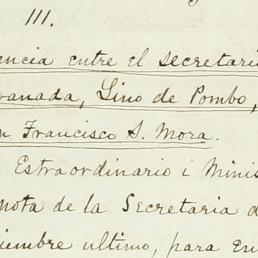 III.
encia entre el secretari
ranada, Lino de Pombo,
n Francisco S. Mora.
Estraordinario i Minis
nota de la Secretaria d
iembre ultimo, para en